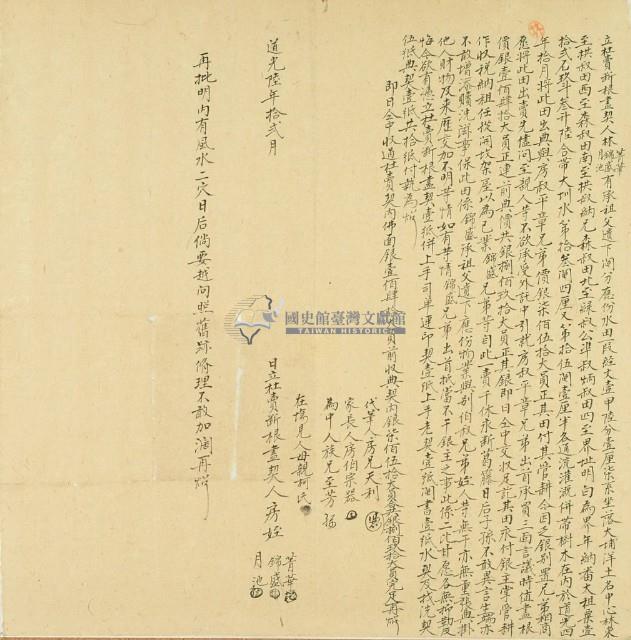 立杜賣斷根盡契人林錦盛菁華月池有承祖父遺下鬮分應份水田一段經丈壹甲陸分壹厘柒系坐落大埔洋土名中心林東
至拱叔田西至森叔田南至拱叔納兄森叔田北至 叔公準叔炳叔田四至界址明白為界年納番大租粟壹
拾貳石玖斗叁升陸合帶大圳水第拾叁鬮四厘又第拾伍鬮壹厘半各通流灌溉併帶樹木在內於道光四
年拾月將此田出典與房叔平章兄弟價銀柒佰伍拾大員正其田付其管耕今因乏銀別置兄弟相商
愿將此田出賣先儘問至親人等不欲承受外託中引就房叔平章兄弟出首承買三面言議時值盡根
價銀壹佰肆拾大員正連前典價共銀捌佰玖拾大員正其銀即日仝中交收足訖其田床付銀主掌管耕
作收稅納租任從開坟架屋以為己業錦盛兄弟等自此一賣千休永斷葛藤日后子孫不敢異言生端亦
不敢增添贖洗滋事保此田係錦盛承祖父遺下應份物業與別伯叔兄弟姪人等無干亦無重張典掛
他人財物及來歷交加不明等情如有等情錦盛兄弟出首抵當不干銀主之事此係二比甘愿各無抑勒反
悔今欲有憑立杜賣斷根盡契壹紙併上手司單連印契壹紙上手老契壹紙鬮書壹紙水契及找洗契
伍紙典契壹紙共拾紙付執為炤
即日仝中收過杜賣契內佛面銀壹佰肆拾大員前收典契內銀柒佰伍拾大員共銀捌佰玖拾大員完足再炤
代筆人房兄天利
家長人房伯宗器
為中人族兄至芳
在場見人母親柯氏
道光陸年拾貳月 日立杜賣斷根盡契人房姪菁華錦盛月池
再批明內有風水二穴日后倘要越向照舊跡脩理不敢加濶再炤
國史館臺灣文獻館
TAIWAN HISTORICA